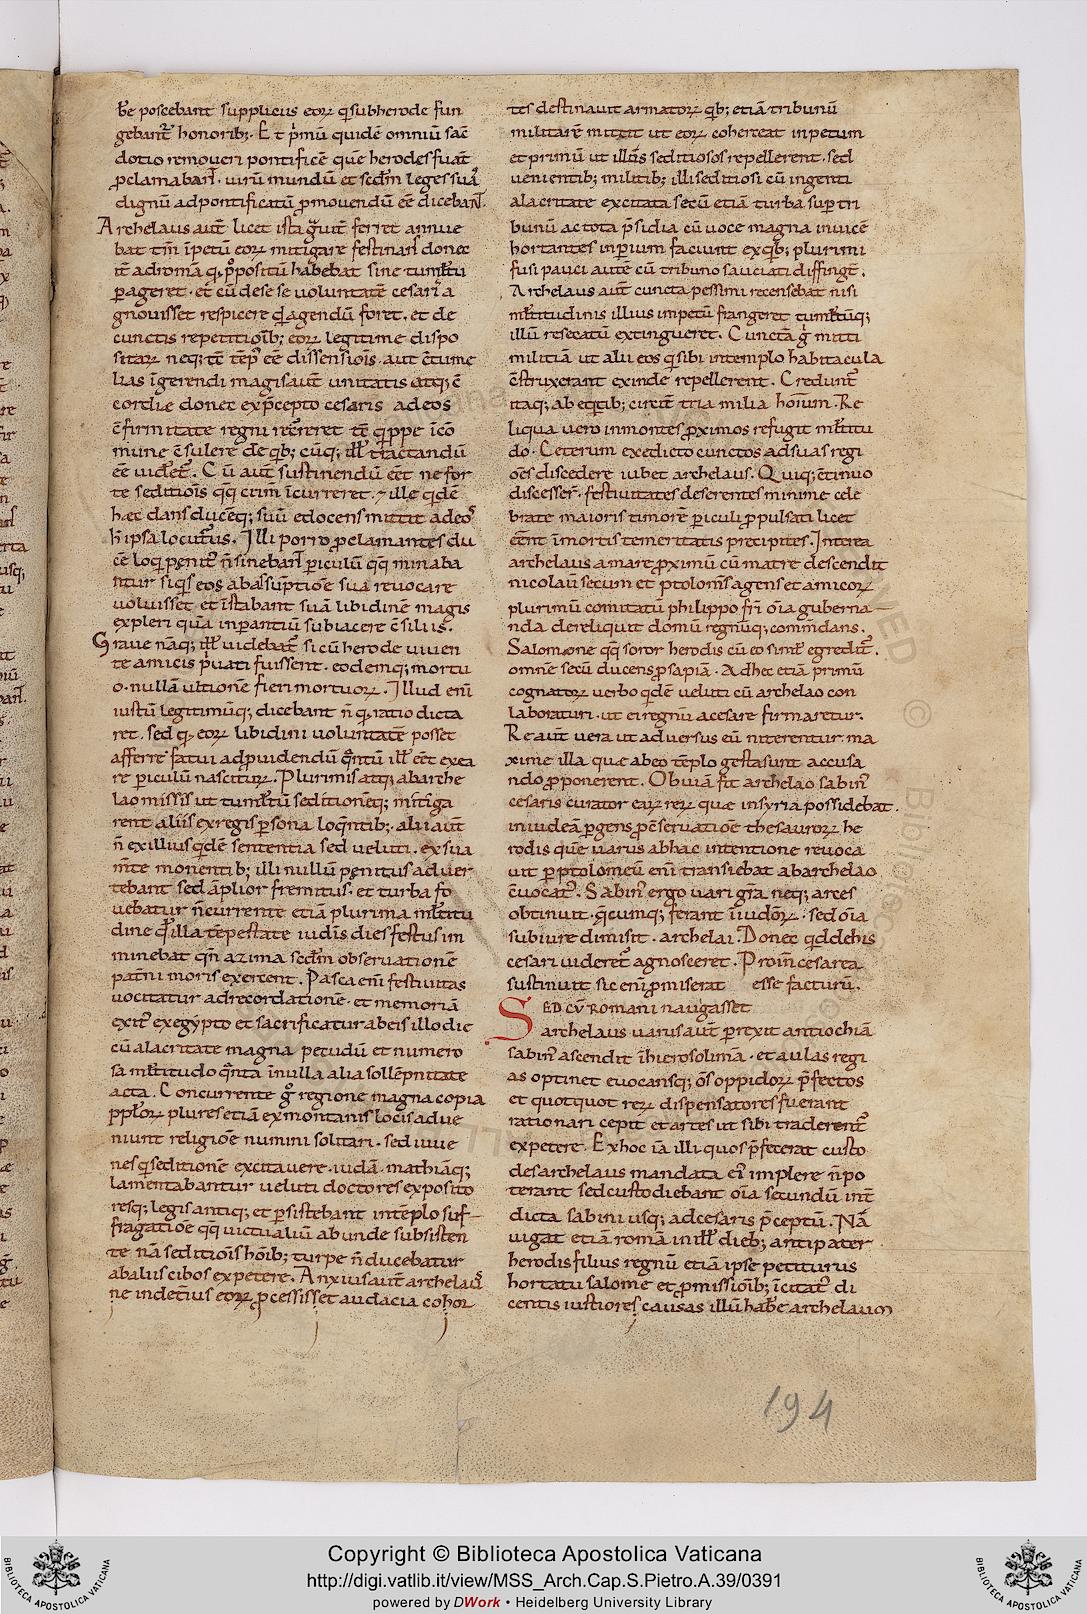 be poscebant suppliciis eoꝝ q̇ sub herode fun
gebant᷑ honorib;. Et p̓mū quidē omniū sac̄
dotio remoueri pontificē quē herodes fuat̄
ꝓclamabant̄. uirū mundū et scd̄m leges suā
dignū ad pontificatū ꝓmouendū eē̄ diceban̄t.
Archelaus aut̄ licet ista g̓uit̄ ferret annue
bat tm̄ īpetū eoꝝ mitigare festinan̄s donec
it̄ ad romā q̓ p̓positū habebat sine tumltū
ꝑageret. et cū de se se uoluntatē cesaris a
gnouisset respicere q̓d agendū foret. et de
cunctis repetitioīb; eoꝝ legitime dispo
sitaꝝ neq; tc̄ tēp᷑ eē̄ dissensiois̄. aut c̄tume
lias īgerendi magis aut̄ unitatis atq; c̄
cordiæ donec ex p̄cepto cesaris ad eos
c̄firmitate regni reūreret
mune c̄sulere de qb; cūq; ill᷑ tractandū
eē̄ uidet᷑. Cū aut̄ sustinendū eēt̄ ne for
te seditiois̄ qq̄ crim̄ īcurreret. ille qdē
hæc dans ducēq; suū edocens mittit ad eos
h̄ ipsa locut᷑us. Illi porro ꝓclamantes du
cē loq̄ penit᷑ ñ sinebant̄ periculū qq̄ minaba
ntur siq̇s eos ab assūptioē sua reuocare
uoluisset et īstabant suā libidinē magis
expleri quā inperantiū subiacere c̄siliis.
Graue nāq; ill᷑ uidebat᷑ si cū herode uiuen
te amicis p̓uati fuissent. eodemq; mortu
o. nullā ultionē fieri mortuoꝝ. Illud eni̅
iustū legitimūq; dicebant ñ q̓ ratio dicta
ret. sed q̓ eoꝝ libidini uoluntatē posset
afferre fatui ad ꝓuidendū q̄ntū ill᷑ eēt̄ ex ea
re periculū nascitur. Plurimis atq; ab arche
lao missis ut tumltū seditionēq; mitiga
rent aliis ex regis ꝑsona loq̄ntib;. alii aut̄
ñ ex illius qdē sententia sed ueluti. ex sua
m̄te monentib; illi nullū penitus aduer
tebant sed āplior fremitus. et turba fo
uebatur ñ currente etiā plurima mltitu
dine q̄ illa tēpestate iudīs dies festus im
minebat qn̄ azima scd̄m obseruationē
pat̄ni moris exercent. Pasca eni̅ festiuitas
uocitatur ad recordationē. et memoriā
exit᷑ ex egypto et sacrificatur ab eis illo die
cū alacritate magna pecudū et numero
sa mltitudo q̄nta īnulla alia sollēpnitate
acta. Concurrente g᷑ regione magna copia
pploꝝ plures etiā ex montanis locis adue
niunt religioē numini solitari. sed iuue
nes q̇ seditionē excitauere. iudā. mathiāq;
lamentabantur ueluti doctores exposito
resq; legis antiq; et persistebant intēplo suf-
fragatioē qq̄ uictualiū abunde subsisten
te nā seditiois̄ hoīb; turpe ñ ducebatur
ab aliis cibos expetere. Anxius aut̄ archelaus
ne in detius eoꝝ ꝓcessisset audacia cohor
tes destinauit armatoꝝ qb; etiā tribunū
militarē mittit ut eoꝝ cohercēat inpetum
et primū ut illos̄ seditiosos repellerent. sed
uenientib; militib; illi seditiosi cū ingenti
alacritate excitata secū etiā turba sup tri
bunū ac tota p̄sidia cū uoce magna inuicē
hortantes inperium faciunt ex qb; plurimi
fusi pauci autē cū tribuno sauciati diffingt̄.
Archelaus aut̄ cuncta pessimi recensebat nisi
mltitudinis illius impetū frangeret tumltūq;
illū resecatū extingueret. Cunctā g᷑ mitti
militiā ut alii eos q̇ sibi in templo habitacula
c̄struxerant exinde repellerent. Credunt᷑
itaq; ab eqtib; circit̄ tria milia hoīum. Re
liqua uero in montes ꝓximos refugit mltitu
do. Ceterum ex edicto cunctos ad suas regi
oēs discedere iubet archelaus. Quiq; c̄tinuo
discesser̄. festiuitates deserentes minime cele
brate maioris timorē periculi ꝓpulsati licet
eēnt̄ īmortis temeritatis precipites. Interea
archelaus a mare ꝓximū cū matre descendit
nicolaū secum et ptolom̄s agens et amicoꝝ
plurimū comitatū philippo fr̄i oīa guberna-
nda dereliquit domū regnūq; comm̄dans.
Salomone qq̄ soror herodis cū eo siml᷑ egredit᷑.
omnē secū ducens ꝓsapiā. Adhec etiā primū
cognatoꝝ uerbo qdē ueluti cū archelao con
laboraturi. ut ei regnū a cesare firmaretur.
Re aut̄ uera ut aduersus eū niterentur. ma
xime illa quæ ab eo tēplo gesta sunt accusa
ndo ꝓponerent. Obuiā fit archelao sabin᷑
cesaris curator eaꝝ reꝝ quæ in syria possidebat.
in iudeā pergens ꝓ c̄seruatioē thesauroꝝ he
rodis quē uarus ab hac intentione reuoca
uit p ptolomeū eni̅ transiebat ab archelao
c̄uocat᷑. Sabin᷑ ergo uari gr̄a neq; arces
obtinuit. q̄cumq; ferant īiudoꝝ. sed oīa
sub iure dimisit. archelai. Donec qd de his
cesari uideret᷑ agnosceret. Proin̄ cesarea
sustinuit sic eni̅ ꝓmiserat esse facturū.
SED CŪ ROmani nauigasset
archelaus uarus aut̄ perexit antiochiā
sabin᷑ ascendit īhierosolimā. et aulas regi
as optinet euocansq; os̄ oppidoꝝ p̄fectos
et quotquot reꝝ dispensatores fuerant
rationari cepit et artes ut sibi traderent᷑
expetere. Ex hoc īa illi quos p̄fecerat custo
des archelaus mandata ei᷑ implere ñ po
terant sed custodiebant oīa secundū int̄
dicta sabini usq; ad cesaris p̄ceptū. Nā
uigat etiā romā in ill᷑ dieb; antipater
herodis filius regnū etiā ipse petiturus
hortatu salome et ꝓmissioīb; īcitat᷑ di
centis iustiores causas illū habe̅ archelaum
194
Copyright © Biblioteca Apostolica Vaticana
http://digi.vatlib.it/view/MSS_Arch.Cap.S.Pietro.A.39/0391
powered by DWork • Heidelberg University Library
BIBLIOTECA APOSTOLICA VATICANA
BIBLIOTECA APOSTOLICA VATICANA